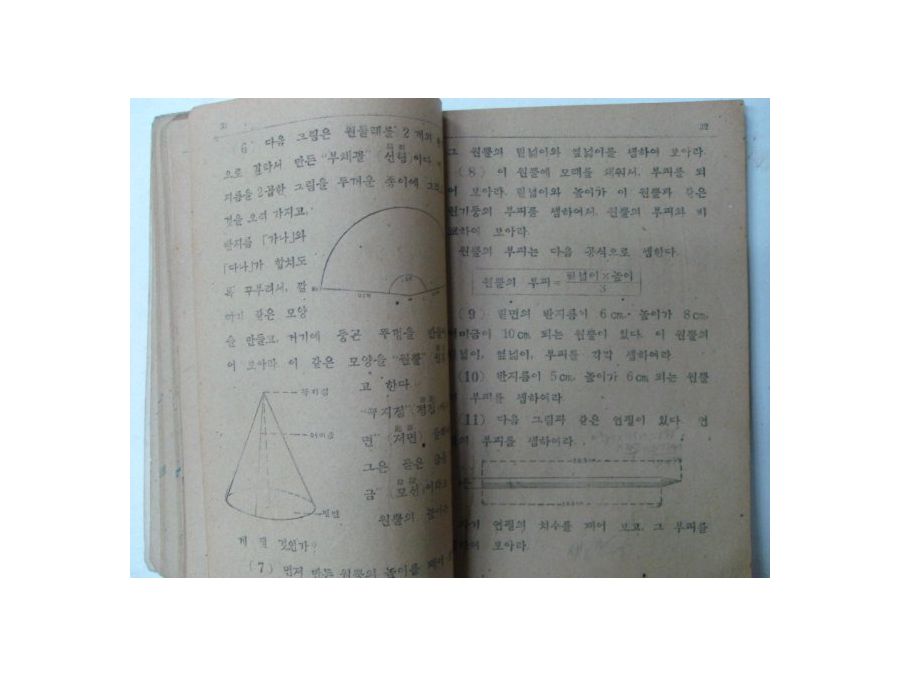 6 다음 그림은 원둘레를 2 개의
으로 갈라서 만든 "부채꼴" (선형)이다
지름을 2곱한 그림을 두꺼운 종이에 그리
것을 오려 가지고,
반지름 「가나」와
「다나」가 합쳐도
록 꾸부려서, 깔
때기 같은 모양
을 만들고, 거기에 둥근 뚜껑을 만들
어 보아라 이 같은 모양을 "원뿔"
고 한다
꼭지점
"꼭지점" (정점)
어미금
면" (저면)
그은 곧은 금
금" (모선)이라고
밑면
원뿔의 높이는
게 될 것인가?
(7) 먼저 만든 원뿔의 높이를 재어
32
그 원뿔의 밑넓이와 옆넓이를 셈하여 보아라.
(8) 이 원뿔에 모래를 채워서, 부피를 되
어 보아라. 밑넓이와 높이가 이 원뿔과 같은
원기둥의 부피를 셈하여서, 원뿔의 부피와 비
교하여 보아라.
원뿔의 부피는 다음 공식으로 셈한다.
원뿔의 부피 = 밑넓이×높이
3
(9) 밑면의 반지름이 6 cm, 높이가 8 cm,
어미금이 10 cm 되는 원뿔이 있다. 이 원뿔의
밑넓이, 옆넓이, 부피를 각각 셈하여라.
(10) 반지름이 5 cm, 높이가 6 cm 되는 원뿔
부피를 셈하여라.
(11) 다음 그림과 같은 연필이 있다. 연
의 부피를 셈하여라.
자기 연필의 치수를 재어 보고, 그 부피를
하여 보아라.